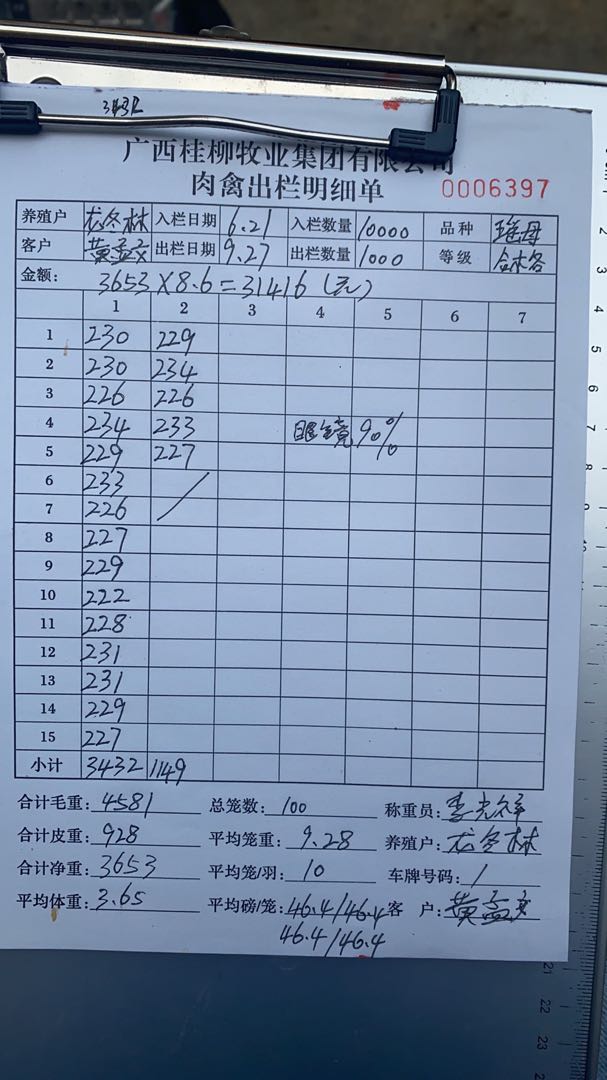 广西桂柳牧业集团有限公司
肉禽出栏明细单 0006397
养殖户 龙冬林 入栏日期 6.21 入栏数量 10000 品种 瑶母
客户 黄孟 出栏日期 9.27 出栏数量 1000 等级 合格
金额: 3653×8.6=31416(元)
1 2 3 4 5 6 7
1 230 229
2 230 234
3 226 226
4 234 233 眼镜 90%
5 229 227
6 233 /
7 226
8 227
9 229
10 222
11 228
12 231
13 231
14 229
15 227
小计 3432 1149
合计毛重: 4581 总笼数: 100 称重员: 李
合计皮重: 928 平均笼重: 9.28 养殖户: 龙冬林
合计净重: 3653 平均笼/羽: 10 车牌号码: /
平均体重: 3.65 平均磅/笼: 46.4/46.4 客 户: 黄孟
46.4/46.4